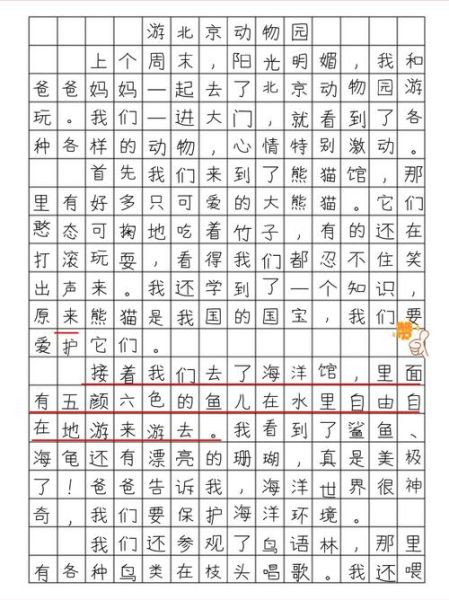 游北京动物园
上个周末，阳光明媚，我和
爸爸妈妈一起去了北京动物园游
玩。我们一进大门，就看到了各
种各样的动物，心情特别激动。
首先我们来到了熊猫馆，那
里有好多只可爱的大熊猫。它们
憨态可掬地吃着竹子，有的还在
打滚玩耍，看得我们都忍不住笑
出声来。我还学到了一个知识，
原来熊猫是我国的国宝，我们要
爱护它们。
接着我们去了海洋馆，里面
有五颜六色的鱼儿在水里自由自
在地游来游去。我看到了鲨鱼、
海龟还有漂亮的珊瑚，真是美极
了！爸爸告诉我，海洋世界很神
奇，我们要保护海洋环境。
我们还参观了鸟语林，那里
有各种鸟类在枝头唱歌。我还喂